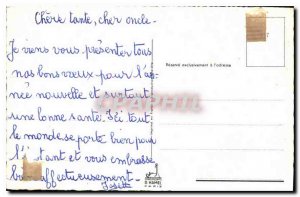 Chère tante, cher oncle.
Je viens vous présenter tous
nos bons vœux pour l'an-
née nouvelle et surtout
une bonne santé. Ici tout
le monde se porte bien pour
l'i tant et vous embrasse
bien affectueusement.
Josette
Réservé exclusivement à l'adresse
PARIS